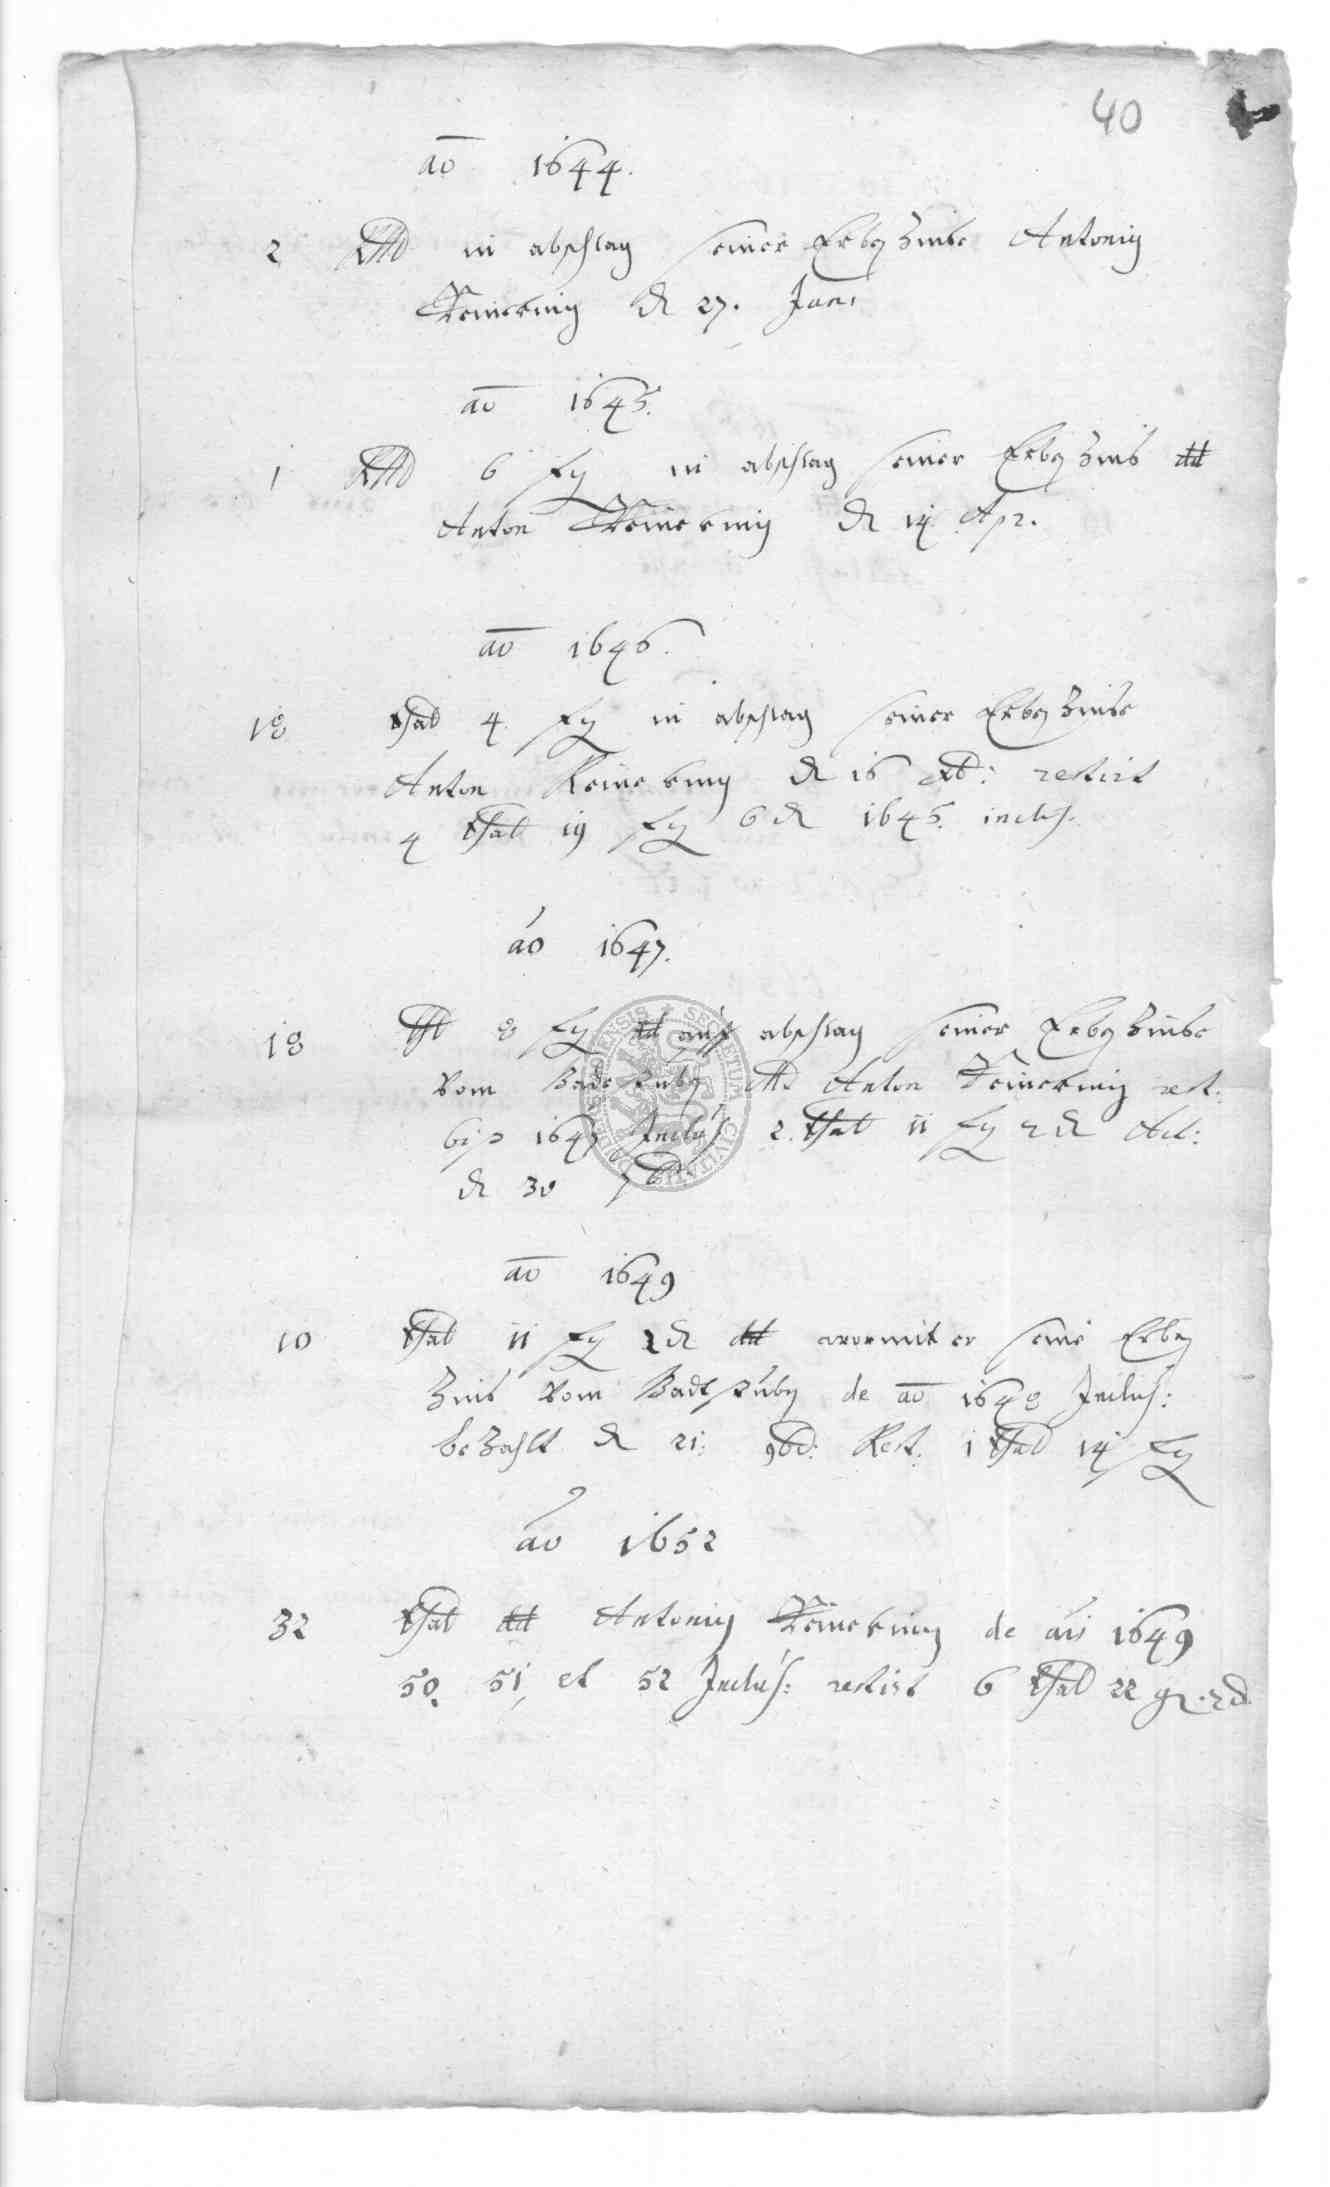 40
ao 1644.
2 Rthd in abschlag seiner Erbg Zinse Antonig
Reinekinig d 27. Juni
ao 1645.
1 Rthd 6 ßg in abschlag seiner Erbg Zins dd
Anton Reinekinig d 14 Apr.
ao 1646.
18 thal 4 ßg in abschlag seiner Erbg Zinse
Anton Reinekinig d 16 restirt
4 thal 19 ßg 6 d 1645. inclus.
ao 1647.
18 th 8 ßg dd auff abschlag seiner Erbg Zinse
vom dd Anton Reinekinig rest:
biß 1647 Inclus 2. thal 11 ßg 2 d Act:
d 30 7b
ao 1649
10 thal 11 ßg 2 d dd wormit er seine Erbg
Zins vom de ao 1648 Inclus:
bezahlt d 21: 9b: Rest. 1 thal 14 ßg
ao 1652
32 thal dd Antonig Reinekinig de ais 1649
50, 51, et 52 Inclus: restirt 6 thal 22 gr. 2 d